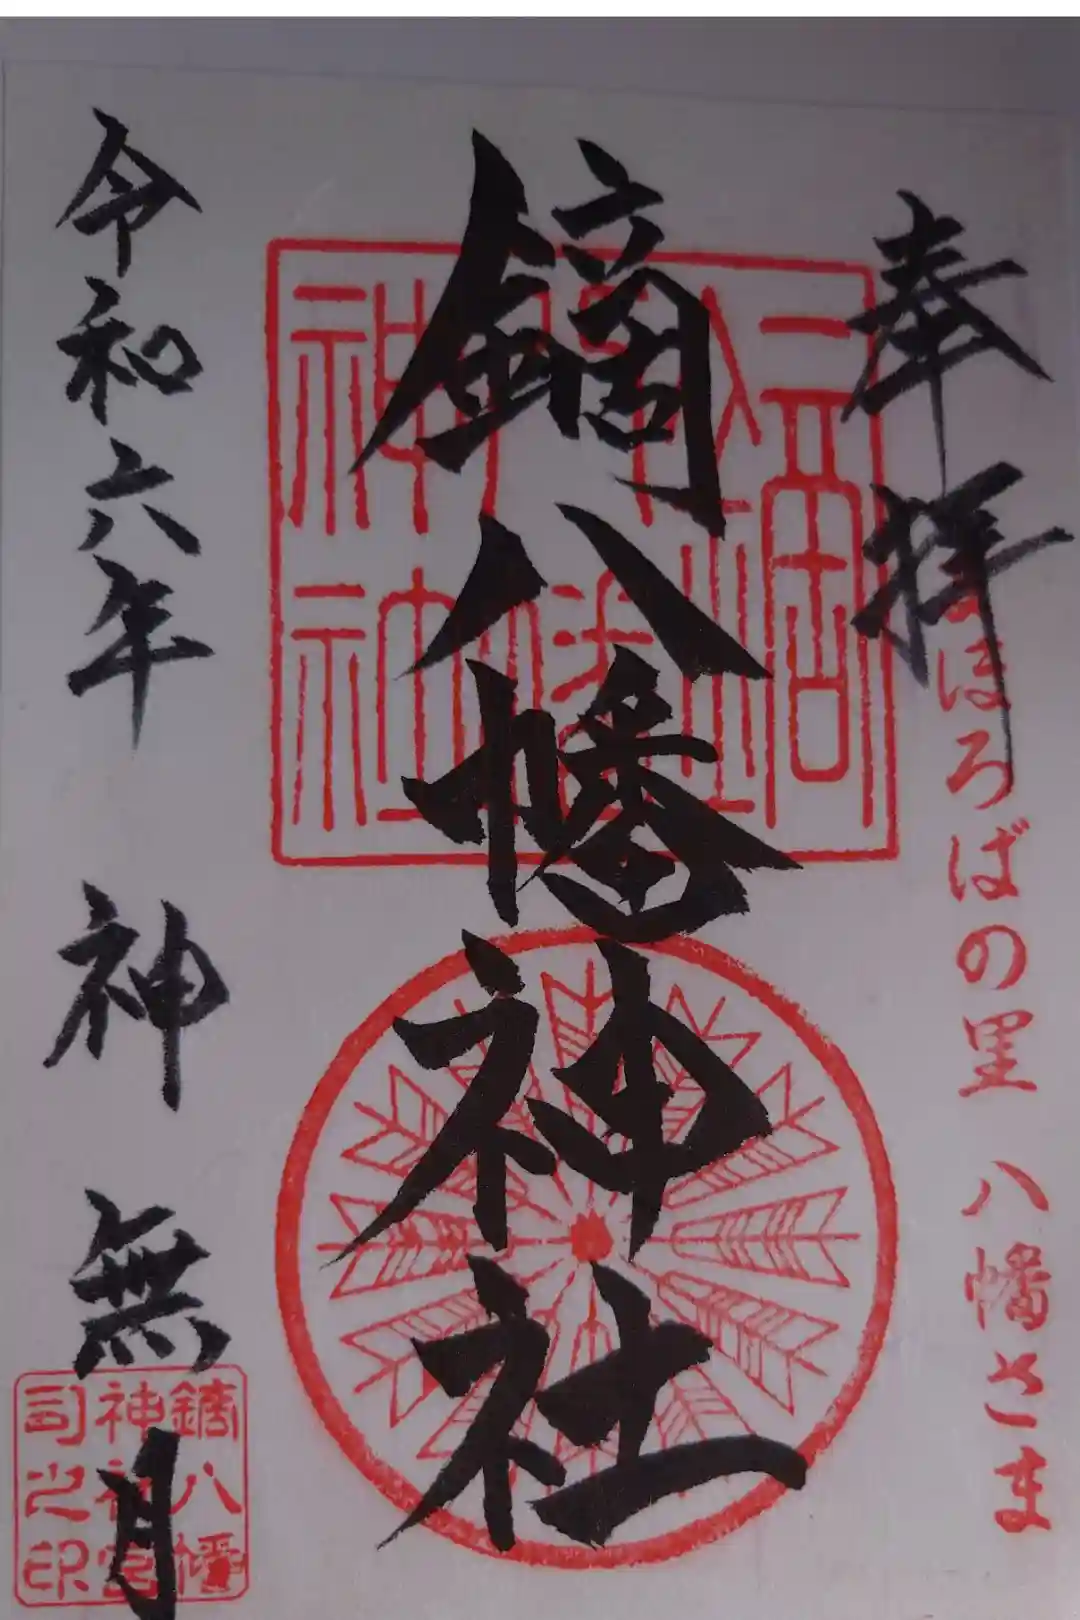 奉拝
まほろばの里 八幡さま
鏑八幡神社
令和六年 神無月
鏑八幡
神社宮
司之印